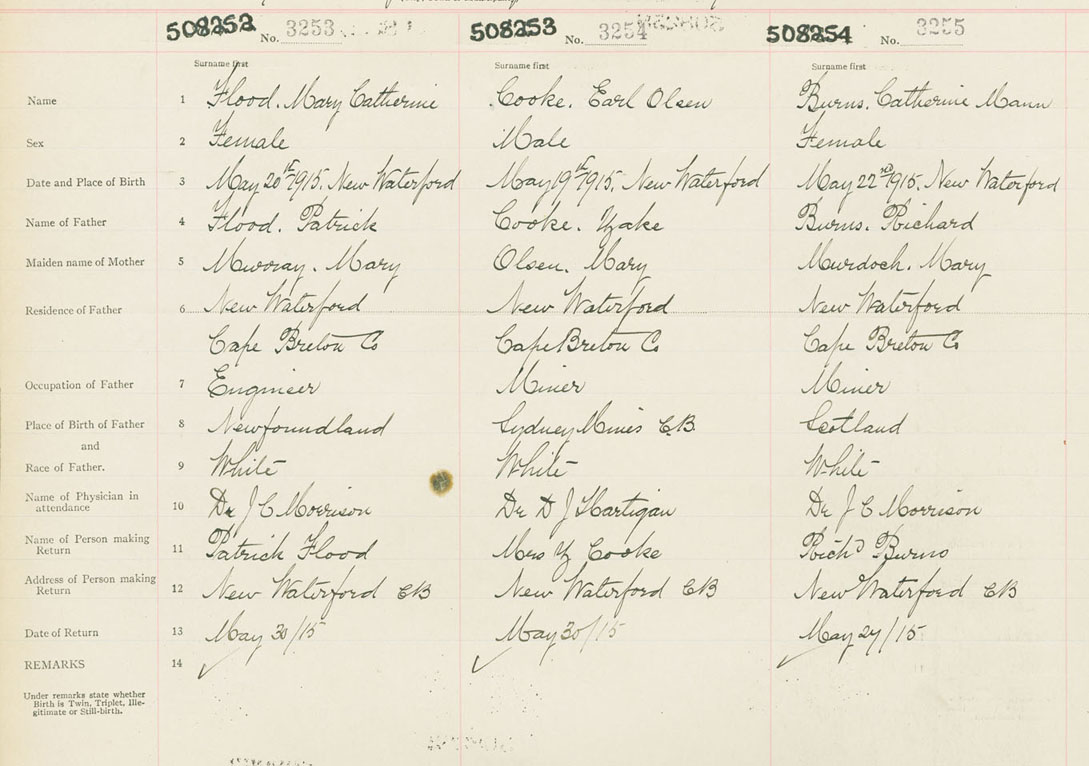 508252 No. 3253 508253 No. 3254 508254 No. 3255
Surname first Surname first Surname first
Name 1 Flood. Mary Catherine Cooke. Earl Olsen Burns. Catherine Mann
Sex 2 Female Male Female
Date and Place of Birth 3 May 20th 1915. New Waterford May 19th 1915. New Waterford May 22nd 1915. New Waterford
Name of Father 4 Flood. Patrick Cooke. Burns. Richard
Maiden name of Mother 5 Murray. Mary Olsen. Mary Murdoch. Mary
Residence of Father 6 New Waterford New Waterford New Waterford
Cape Breton Co Cape Breton Co Cape Breton Co
Occupation of Father 7 Engineer Miner Miner
Place of Birth of Father 8 Newfoundland Sydney Mines CB Scotland
and
Race of Father. 9 White White White
Name of Physician in
attendance 10 Dr J C Morrison Dr D J Hartigan Dr J C Morrison
Name of Person making
Return 11 Patrick Flood Mrs Cooke Richd Burns
Address of Person making
Return 12 New Waterford CB New Waterford CB New Waterford CB
Date of Return 13 May 30/15 May 30/15 May 27/15
REMARKS 14
Under remarks state whether
Birth is Twin, Triplet, Ille-
gitimate or Still-birth.